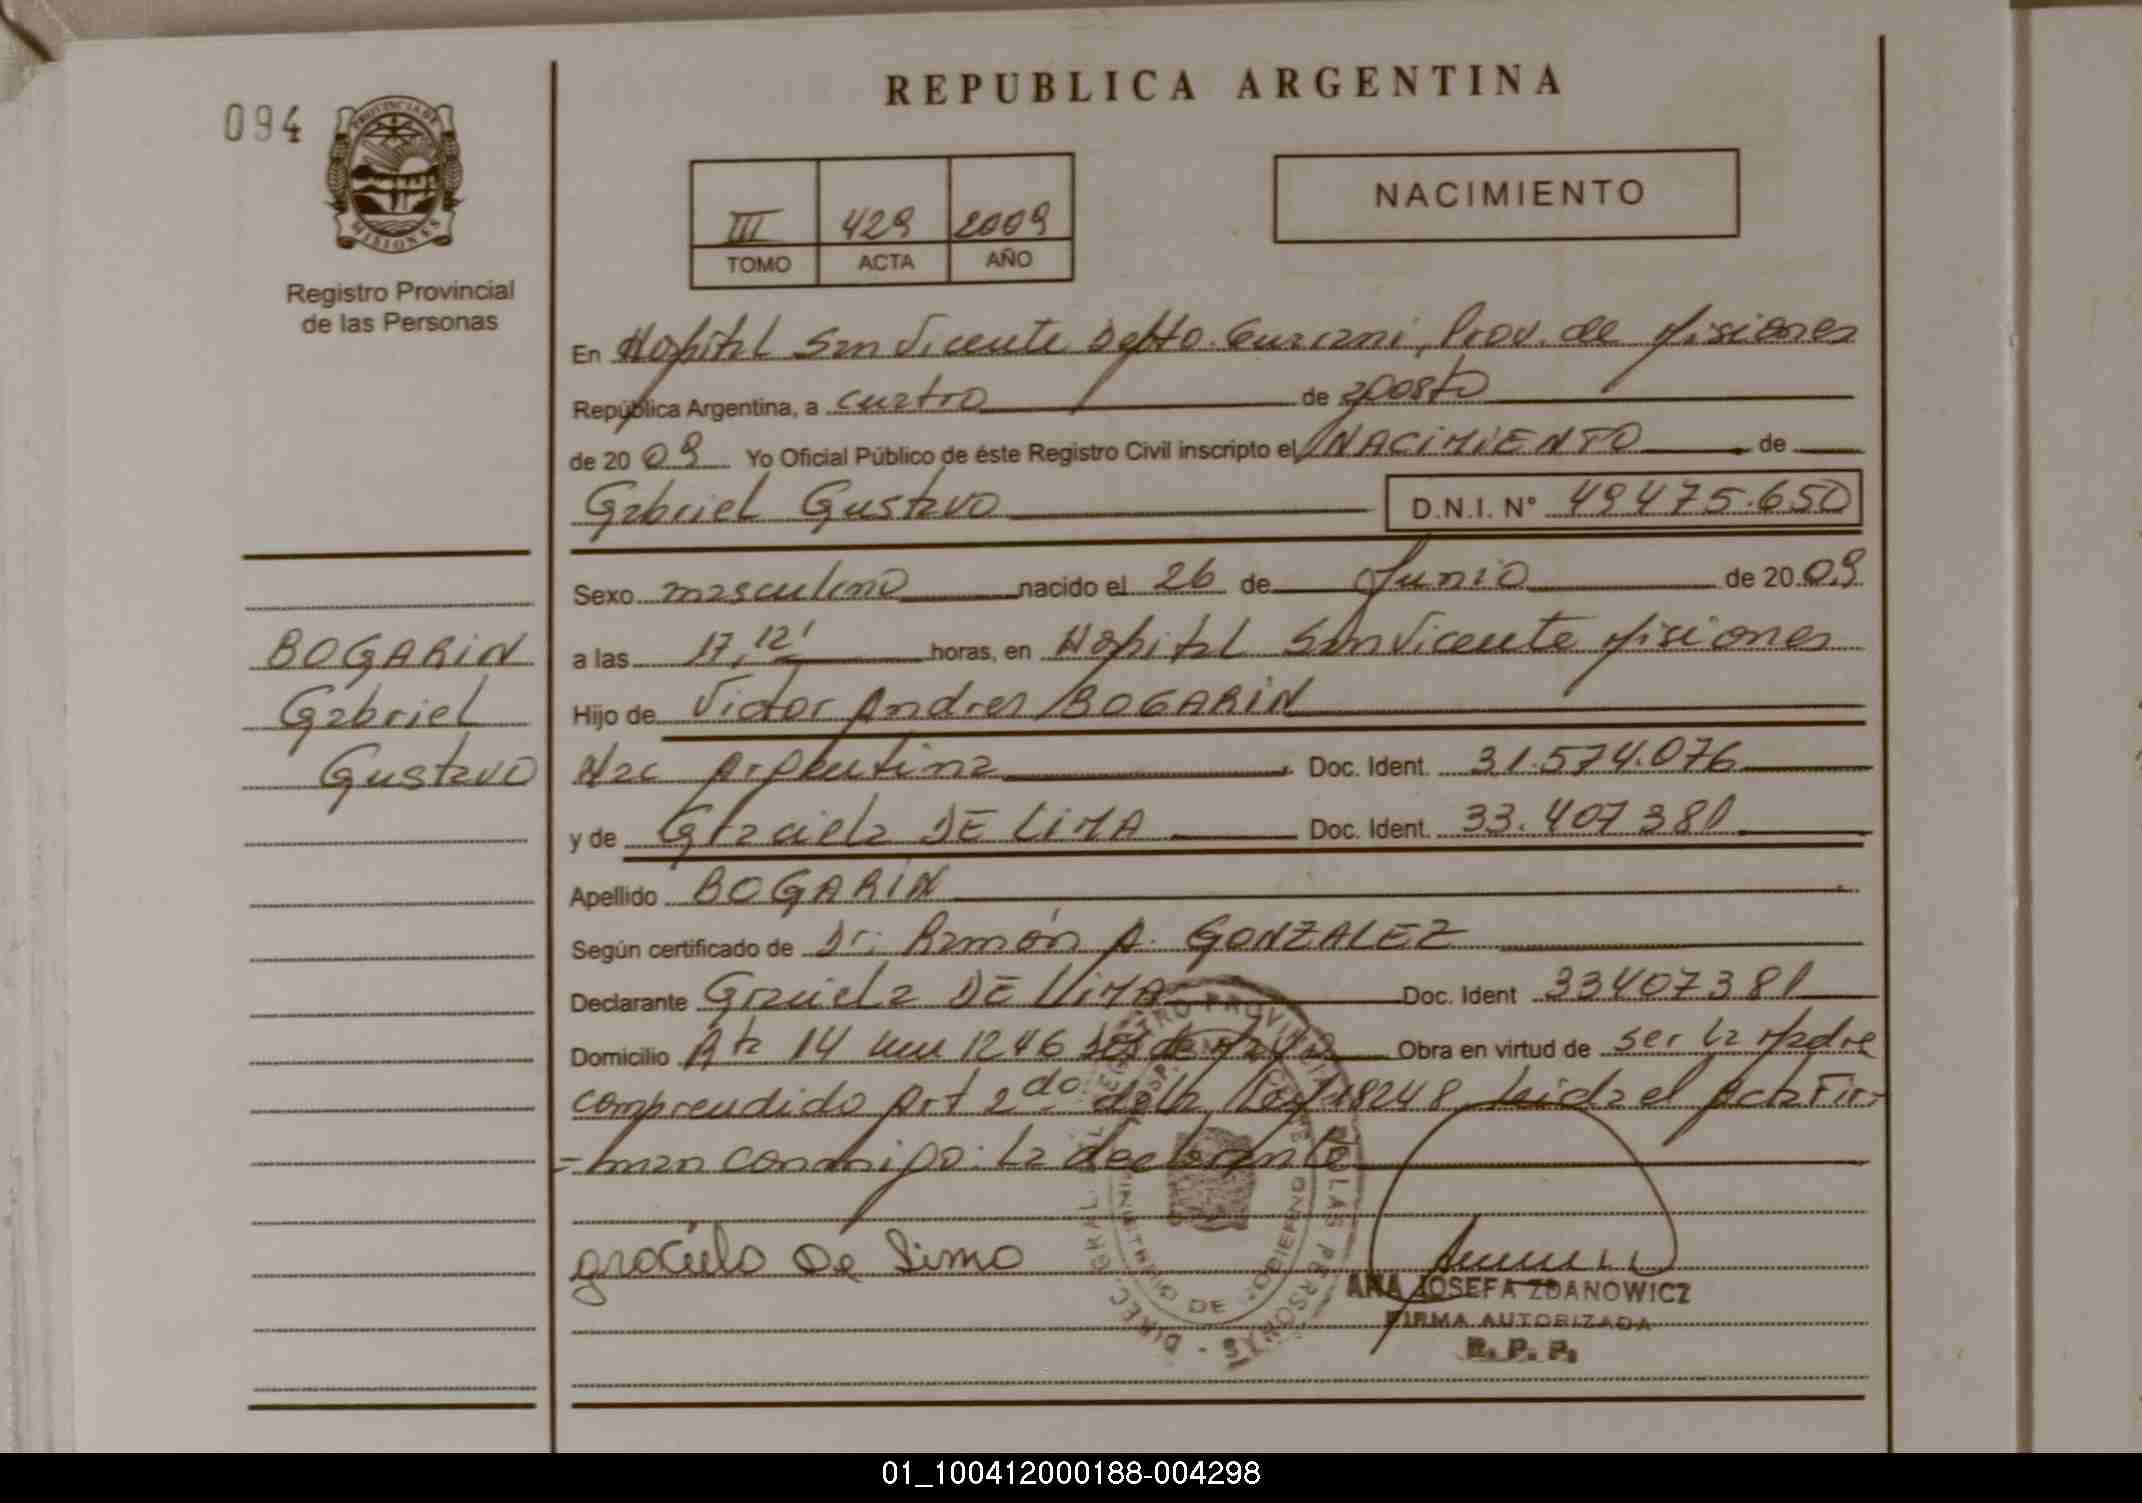 REPUBLICA ARGENTINA
094
PROVINCIA DE
MISIONES
Registro Provincial
de las Personas
III 429 2009
TOMO ACTA AÑO
NACIMIENTO
En Hopital San Vicente Dpto. Guarani, Prov. de Misiones
República Argentina, a cuatro de agosto
de 2009 Yo Oficial Público de éste Registro Civil inscripto el NACIMIENTO de
Gabriel Gustavo D.N.I. Nº 49475.650
Sexo masculino nacido el 26 de Junio de 2009
a las 17,12' horas, en Hopital San Vicente Misiones
Hijo de Victor Andres BOGARIN
Nac Argentina Doc. Ident. 31.574.076
y de Graciela DE LIMA Doc. Ident. 33.407381
Apellido BOGARIN
Según certificado de Dr. Ramón A. GONZALEZ
Declarante Graciela DE LIMA Doc. Ident 33407381
Domicilio Rta 14 km 1246 Dos de Mayo Obra en virtud de ser la Madre
comprendido Art 2do. de la Ley 18248, Leida el Acta Fir-
-man conmigo: La declarante
BOGARIN
Gabriel
Gustavo
graciela De Lima
ANA JOSEFA ZDANOWICZ
FIRMA AUTORIZADA
R. P. P.
01_100412000188-004298